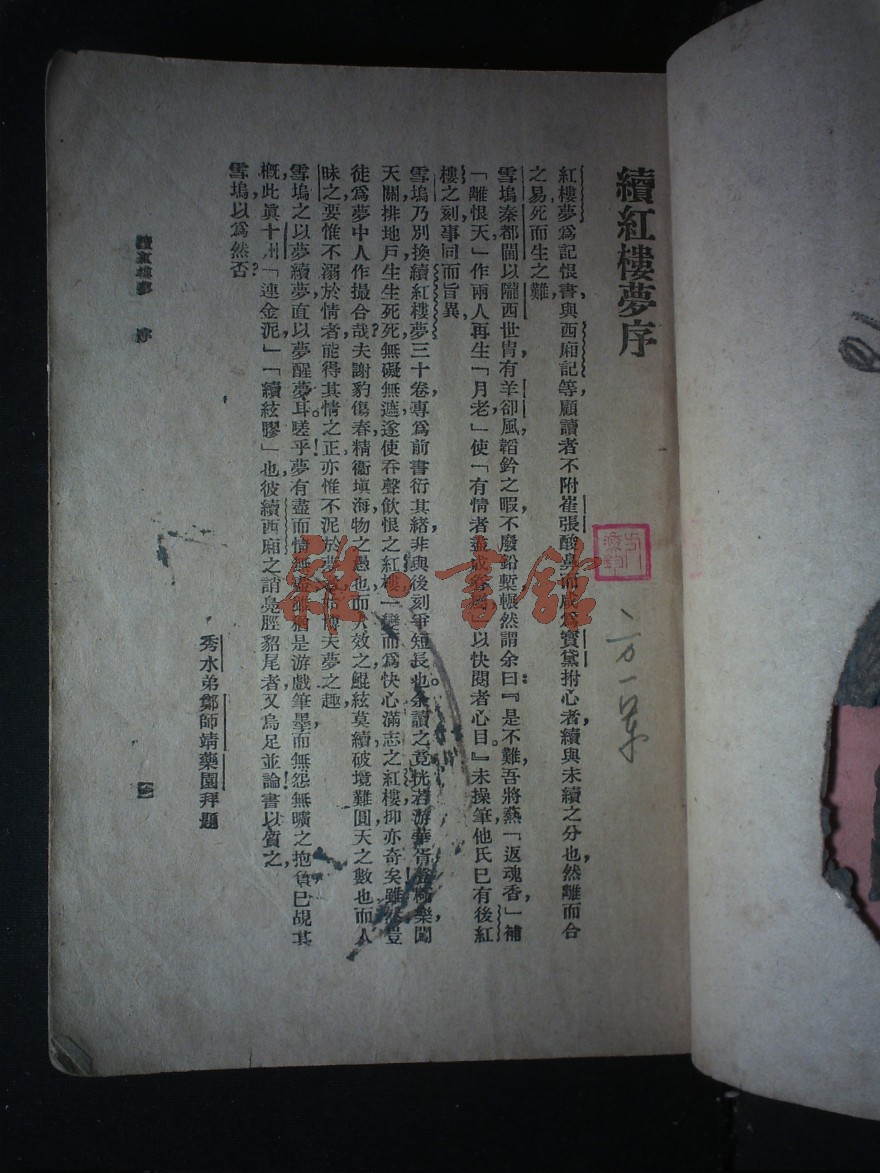 續紅樓夢序
紅樓夢爲記恨書，與西廂記等，顧讀者不附崔張酸鼻而咸爲寶黛拊心者，續與未續之分也，然離而合
之易，死而生之難，
雪塢秦都閫以隴西世胄，有羊卻風，韜鈐之暇，不廢鉛槧，悵然謂余曰：『是不難，吾將爇「返魂香」，補
「離恨天」，作兩人再生「月老」，使「有情者盡成眷屬」，以快閱者心目。』未操筆，他氏巳有後紅
樓之刻，事同而旨異，
雪塢乃別換續紅樓夢三十卷，專爲前書衍其緒，非與後刻爭短長也。余讀之，竟恍若游華胥，登極樂，闖
天關，排地戶，生生死死，無礙無遮，遂使吞聲飲恨之紅樓，一變而爲快心滿志之紅樓，抑亦奇矣，雖然，豈
徒爲夢中人作撮合哉？夫謝豹傷春，精衞塡海，物之愚也，而人效之，鯤絃莫續，破境難圓，天之數也，而人
昧之，要惟不溺於情者，能得其情之正，亦惟不泥於夢者，天夢之趣，
雪塢之以夢續夢，直以夢醒夢耳。嗟乎！夢有盡而情無盡，雖猶是游戲筆墨，而無怨無曠之抱負，巳覘其
槪，此眞十州「連金泥」「續絃膠」也，彼續西廂之誚鳧脛貂尾者，又烏足並論！書以質之，
雪塢，以爲然否？
秀水弟鄭師靖藥園拜題
續紅樓夢 序
一
雜·書館